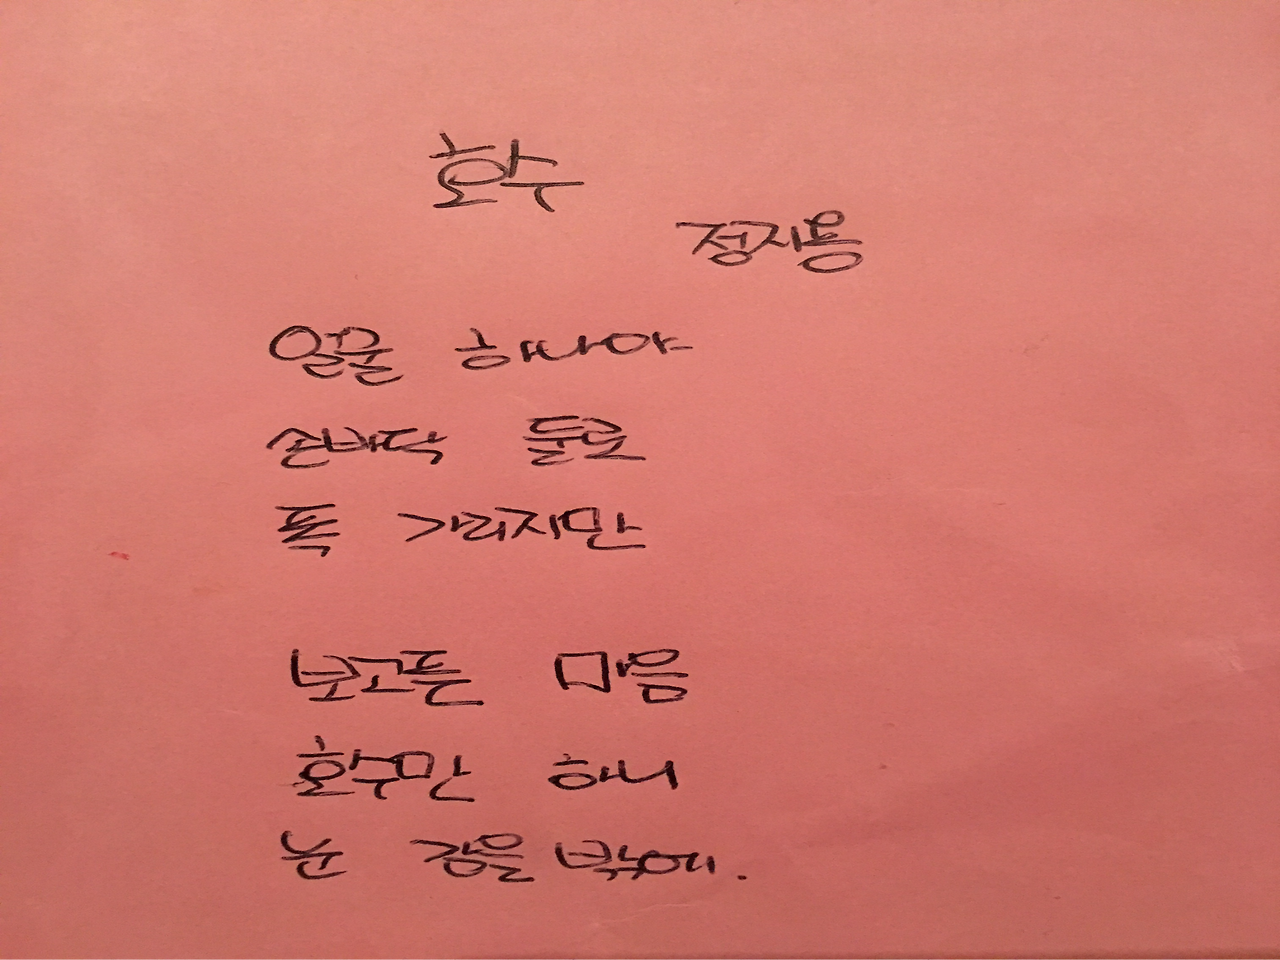 호수
정지용
얼굴 하나야
손바닥 둘로
폭 가리지만
보고픈 마음
호수만 하니
눈 감을 밖에.